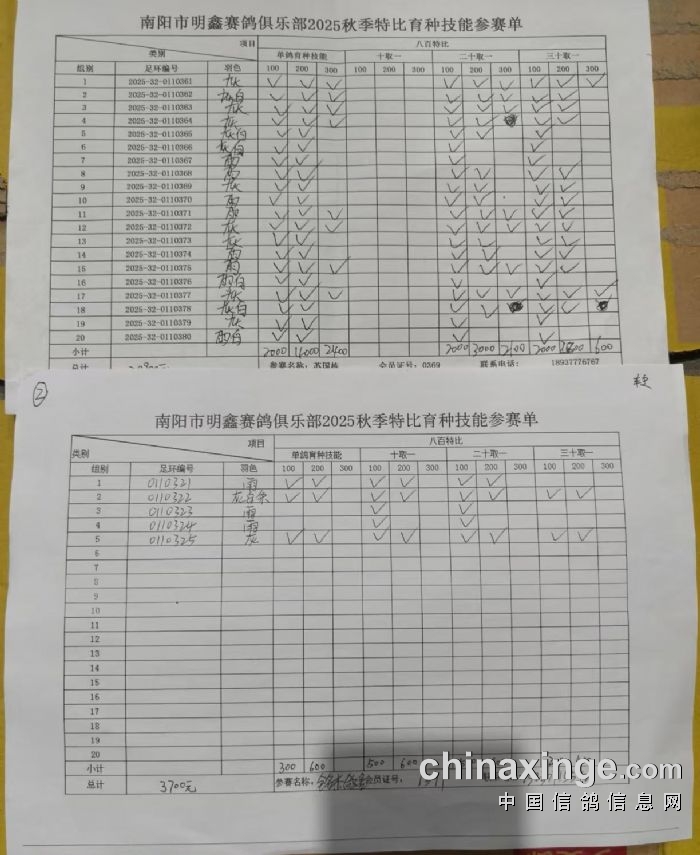 南阳市明鑫赛鸽俱乐部2025秋季特比育种技能参赛单
项目 八百特比
类别 单鸽育种技能 十取一 二十取一 三十取一
组别 足环编号 羽色 100 200 300 100 200 300 100 200 300 100 200 300
1 2025-32-0110361 灰 ✓ ✓ ✓ ✓ ✓ ✓ ✓ ✓ ✓
2 2025-32-0110362
3 2025-32-0110363 灰
4 2025-32-0110364 灰
5 2025-32-0110365 灰白
6 2025-32-0110366 灰白
7 2025-32-0110367 雨
8 2025-32-0110368 雨
9 2025-32-0110369 灰
10 2025-32-0110370 雨
11 2025-32-0110371 雨
12 2025-32-0110372 灰
13 2025-32-0110373 灰
14 2025-32-0110374 雨
15 2025-32-0110375 雨
16 2025-32-0110376 雨白
17 2025-32-0110377 灰
18 2025-32-0110378 灰白
19 2025-32-0110379 灰
20 2025-32-0110380 雨白
小计 2000 2400 2000 3000 2000 600
总计 参赛名称： 会员证号：0269 联系电话：18937776767
②
南阳市明鑫赛鸽俱乐部2025秋季特比育种技能参赛单
项目 八百特比
类别 单鸽育种技能 十取一 二十取一 三十取一
组别 足环编号 羽色 100 200 300 100 200 300 100 200 300 100 200 300
1 0110321 雨 ✓ ✓ ✓ ✓ ✓ ✓
2 0110322 灰白条 ✓ ✓ ✓ ✓ ✓ ✓ ✓ ✓
3 0110323 雨 ✓ ✓
4 0110324 雨 ✓ ✓
5 0110325 灰 ✓ ✓ ✓ ✓ ✓ ✓ ✓ ✓
6
7
8
9
10
11
12
13
14
15
16
17
18
19
20
小计 300 600 500 600
总计 3700元 参赛名称： 会员证号：
chinaxinge.com
中国信鸽信息网